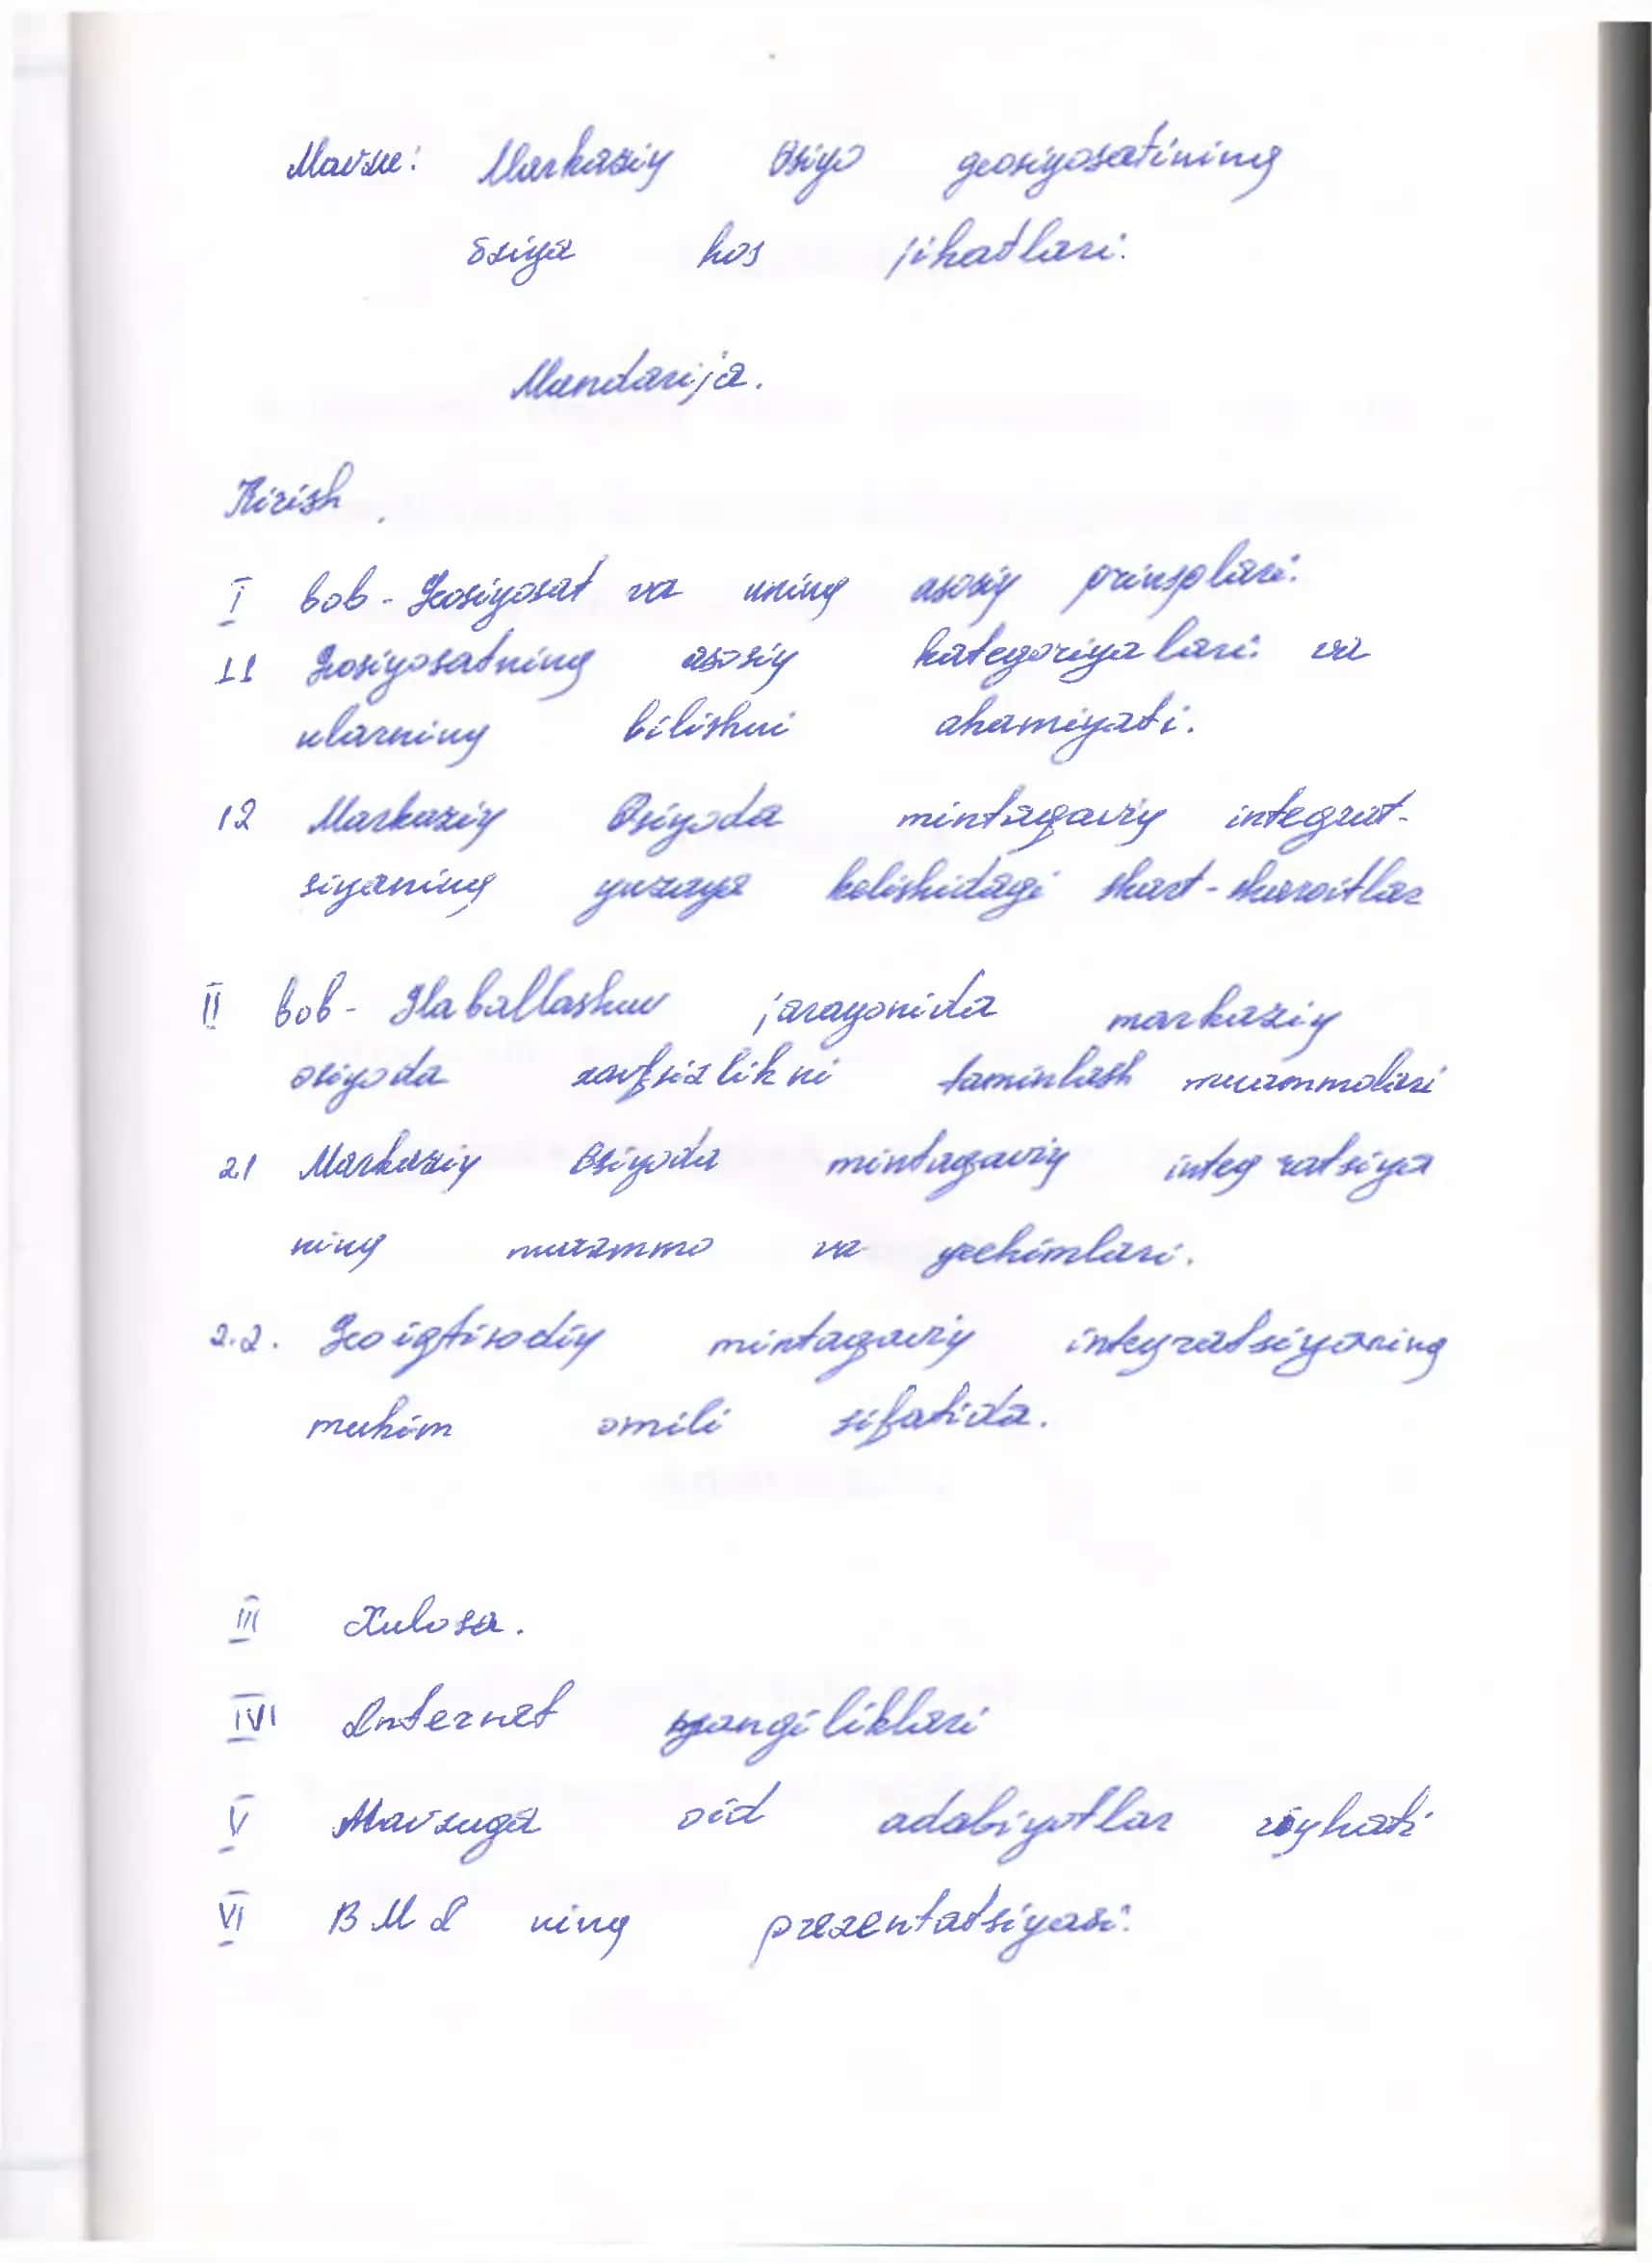 Mavzu: Markaziy Osiyo geosiyosatining
õziga hos jihatlari.
Mundarija.
Kirish.
I bob - Geosiyosat va uning asosiy prinsplari.
11 Geosiyosatning asosiy kategoriyalari va
ularning bilishni ahamiyati.
12 Markaziy Osiyoda mintaqaviy integrat-
siyaning yuzaga kelishidagi shart-sharoitlar
II bob - Glaballashuv jarayonida markaziy
osiyoda xavfsizlikni taminlash muammolari
21 Markaziy Osiyoda mintaqaviy integratsiya
ning muammo va yechimlari.
2.2. Geoiqtisodiy mintaqaviy integratsiyaning
muhim omili sifatida.
III Xulosa.
IV Internet yangiliklari
V Mavzuga oid adabiyotlar rõyhati
VI BMI ning prezentatsiyasi.